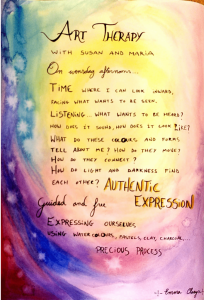 ART THERAPY
WITH SUSAN AND MARIA
On wensday afternoons...
TIME WHERE I CAN LOOK INWARD,
FACING WHAT WANTS TO BE SEEN.
LISTENING... WHAT WANTS TO BE HEARD?
HOW DOES IT SOUND, HOW DOES IT LOOK LIKE?
WHAT DO THESE COLOURS AND FORMS
TELL ABOUT ME? HOW DO THEY MOVE?
HOW DO THEY CONNECT?
HOW DO LIGHT AND DARKNESS FIND
EACH OTHER? AUTHENTIC
Guided and free EXPRESSION
EXPRESSING OURSELVES
USING WATERCOLOURS, PASTELS, CLAY, CHARCOAL...
PRECIOUS PROCESS
Emma